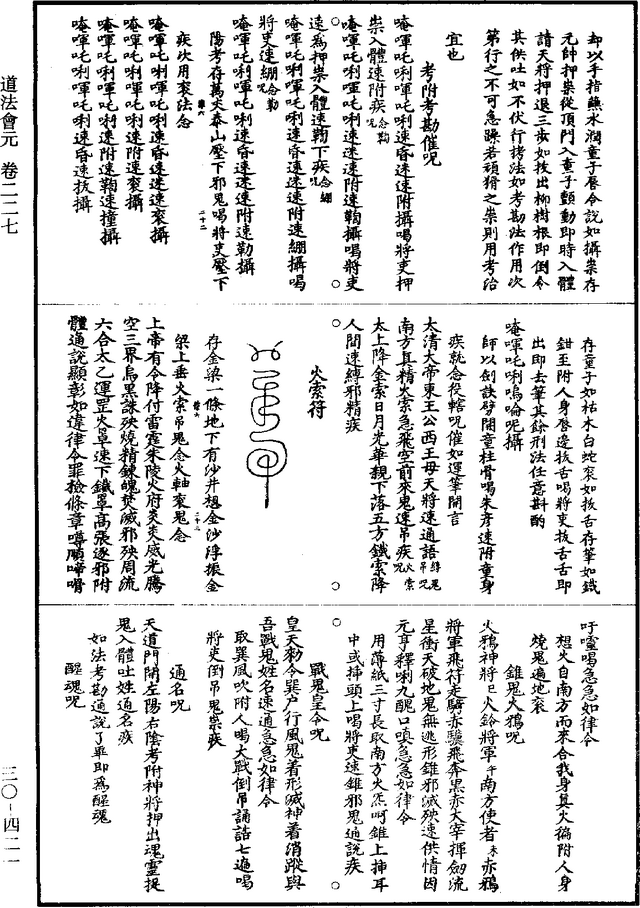 道法會元 卷二二七
却以手指蘸水潤童子唇令說如攝祟存
元帥押祟從頂門入童子顫動即時入體
請天將押退三步如拔出柳樹根即倒令
其供吐如不伏行拷法如考勘法作用次
第行之不可急躁若頑猾之祟則用考治
宜也
考附考勘催呪
唵㖷吒唎㖷吒唎速昏迷速附攝喝將吏押
祟入體速附疾念勒呪
唵㖷吒唎㖷吒唎速迷速附速鞫攝喝將吏
速為押祟入體速鞫下疾念綳呪
唵㖷吒唎㖷吒唎速昏速迷速附速綳攝喝
將吏速綳念勒呪
唵㖷吒唎㖷吒唎速昏速迷速附速勒攝
陽考存萬火泰山壓下邪鬼喝將吏壓下
疾次用衮法念
唵㖷吒唎㖷吒唎速昏速迷速衮攝
唵㖷吒唎㖷吒唎速附速衮攝
唵㖷吒唎㖷吒唎速附速鞫速撞攝
唵㖷吒唎㖷吒唎速昏速拔攝
存童子如枯木白蛇衮如拔舌存筆如鐵
鉗至附人身唇邊拔舌喝將吏拔舌舌即
出即去筆其餘刑法任意斟酌
唵㖷吒唎嗚㖮呪攝
師以劍訣劈開童柱骨喝朱彥速附童身
疾就念役轄呪催如運筆開言
太清大帝東王公西王母天將速通語縛鬼吊呪
南方真精火索急飛空前來鬼速吊疾火索呪
太上降金索日月光華親下落五方鐵索降
人間速縛邪精疾
火索符
存金梁一條地下有沙井想金沙浮振金
梁上垂火索吊鬼念火軸衮鬼念
上帝有令降付雷霆朱陵火府炎炎威光騰
空三界烏黑誅殃燒精鍊魄焚滅邪殃周流
六合太乙運罡火單速下鐵罩高張逐邪附
體通說顯彰如違律令罪撿條章噂𠹀啼㗅
吁嚧喝急急如律令
想火自南方而來合我身真火徧附人身
燒鬼遍地衮
錐鬼火鴉呪
火鴉神將巳火鈴將軍午南方使者未赤鴉
將軍飛符走騎赤驥飛奔黑赤大宰揮劍流
星衝天破地鬼無逃形錐邪滅殃速供情因
元亨釋唎九醜口嗔急急如律令
用薄紙三寸長取南方火炁呵錐上揷耳
中或揷頭上喝將吏速錐邪鬼通說疾
戰鬼皇令呪
皇天勑令巽户行風鬼着形滅神着消蹤與
吾戰鬼姓名速通急急如律令
取巽風吹附人喝大戰倒吊誦詰七遍喝
將吏倒吊鬼祟疾
通名呪
天道門開左陽右陰考附神將押出魂靈捉
鬼入體吐姓通名疾
如法考勘通說了畢即爲醒魂
醒魂呪
三〇-四二一